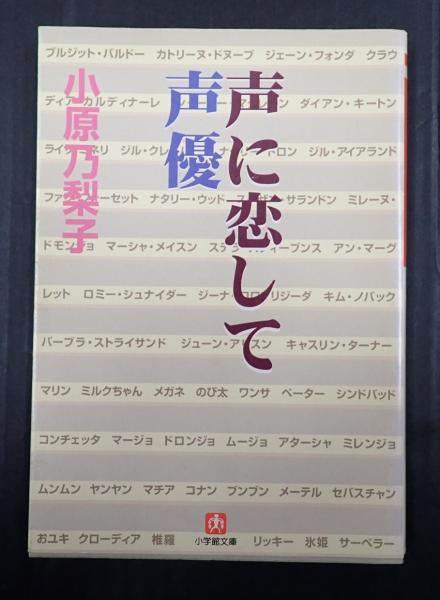 声に恋して
声優
小原乃梨子
ブルジット・バルドー カトリーヌ・ドヌーブ ジェーン・フォンダ クラウ
ディア・カルディナーレ ダイアン・キートン
ライザ・ミネリ ジル・クレイ ジル・アイアランド
ファラ・フォーセット ナタリー・ウッド スーザン・サランドン ミレーヌ・
ドモンジョ マーシャ・メイスン ステラ・スティーブンス アン・マーグ
レット ロミー・シュナイダー ジーナ・ロロブリジーダ キム・ノバック
バーブラ・ストライサンド ジューン・アリスン キャスリン・ターナー
マリン ミルクちゃん メガネ のび太 ワンサ ペーター シンドバッド
コンチェッタ マージョ ドロンジョ ムージョ アターシャ ミレンジョ
ムンムン ヤンヤン マチア コナン ブンブン メーテル セバスチャン
おユキ クローディア 椎羅 リッキー 氷姫 サーベラー
小学館文庫